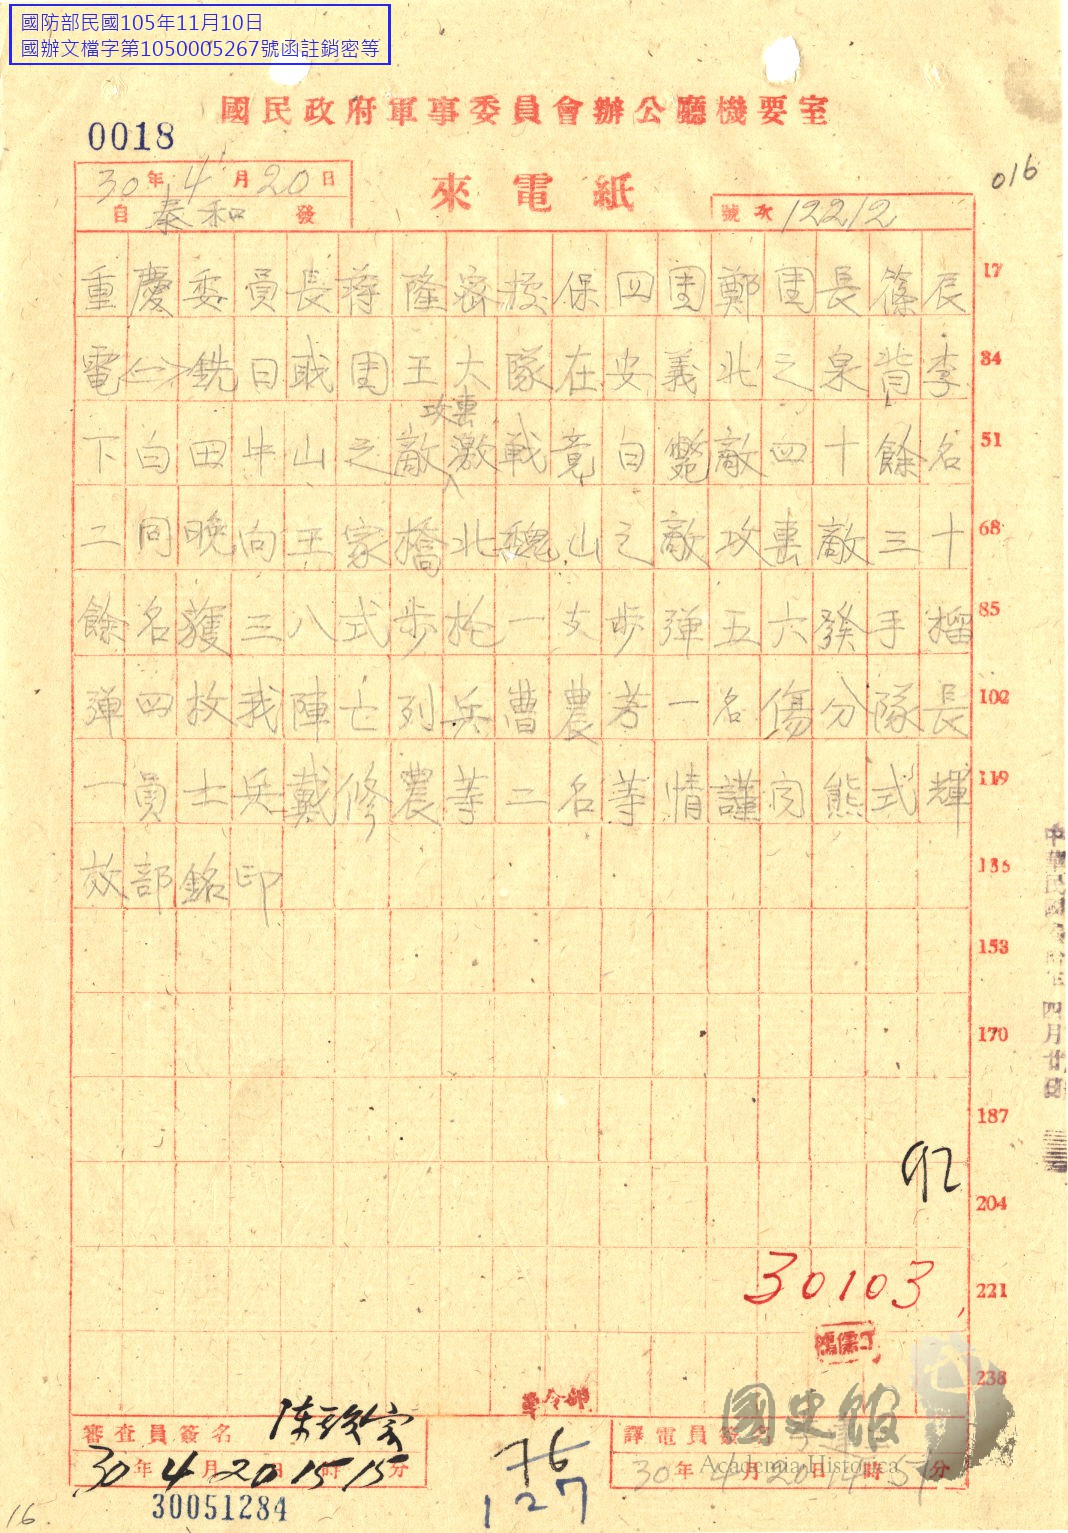 國防部民國105年11月10日
國辦文檔字第1050005267號函註銷密等
國民政府軍事委員會辦公廳機要室
0018
016
30年4月20日
來電紙
自泰和發
號次12212
重慶委員長蔣隆密據保四團鄭團長篠辰 17
電<一>銑日職團王大隊在安義北之泉背李 34
攻襲
下白田牛山之敵激戰竟日斃敵四十餘名 51
二同晚向王家橋北魏山之敵攻襲敵三十 68
餘名獲三八式步槍一支步彈五六發手榴 85
彈四枚我陣亡列兵曹農芳一名傷分隊長 102
一員士兵戴修農等二名等情謹聞熊式輝 119
部銘印 136
153
170
187
92
204
30103
221
238
軍令部
審查員簽名
譯電員簽名
30年4月20日15時15分
76
30年4月20日14時51分
30051284
127
16.
國史館
Academia Historica
四月廿